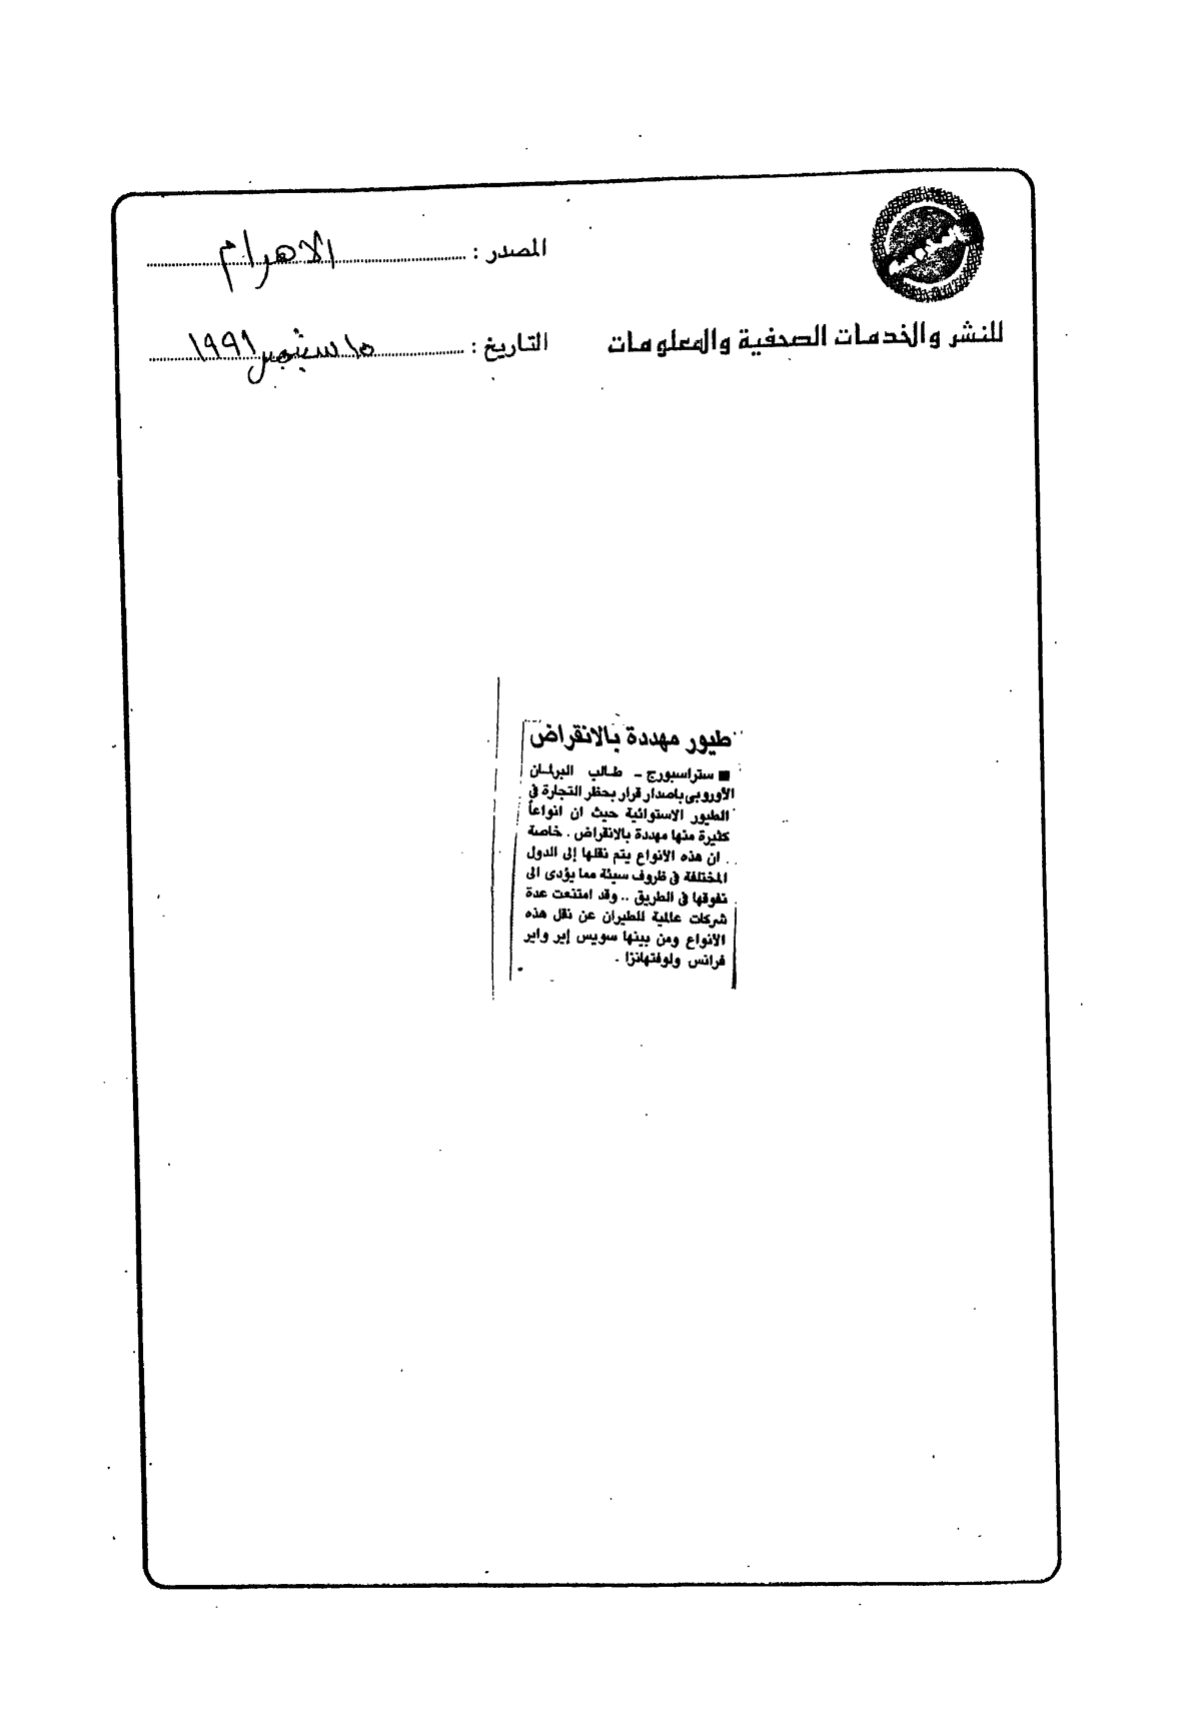 المصدر : الاهرام
للنشر والخدمات الصحفية والمعلومات
التاريخ : ١٥ سبتمبر ١٩٩١
طيور مهددة بالانقراض
■ ستراسبورج - طالب البرلمان
الأوروبى باصدار قرار بحظر التجارة فى
الطيور الاستوائية حيث ان انواعاً
كثيرة منها مهددة بالانقراض . خاصة
ان هذه الأنواع يتم نقلها إلى الدول
المختلفة فى ظروف سيئة مما يؤدى الى
نفوقها فى الطريق .. وقد امتنعت عدة
شركات عالمية للطيران عن نقل هذه
الأنواع ومن بينها سويس إير واير
فرانس ولوفتهانزا .